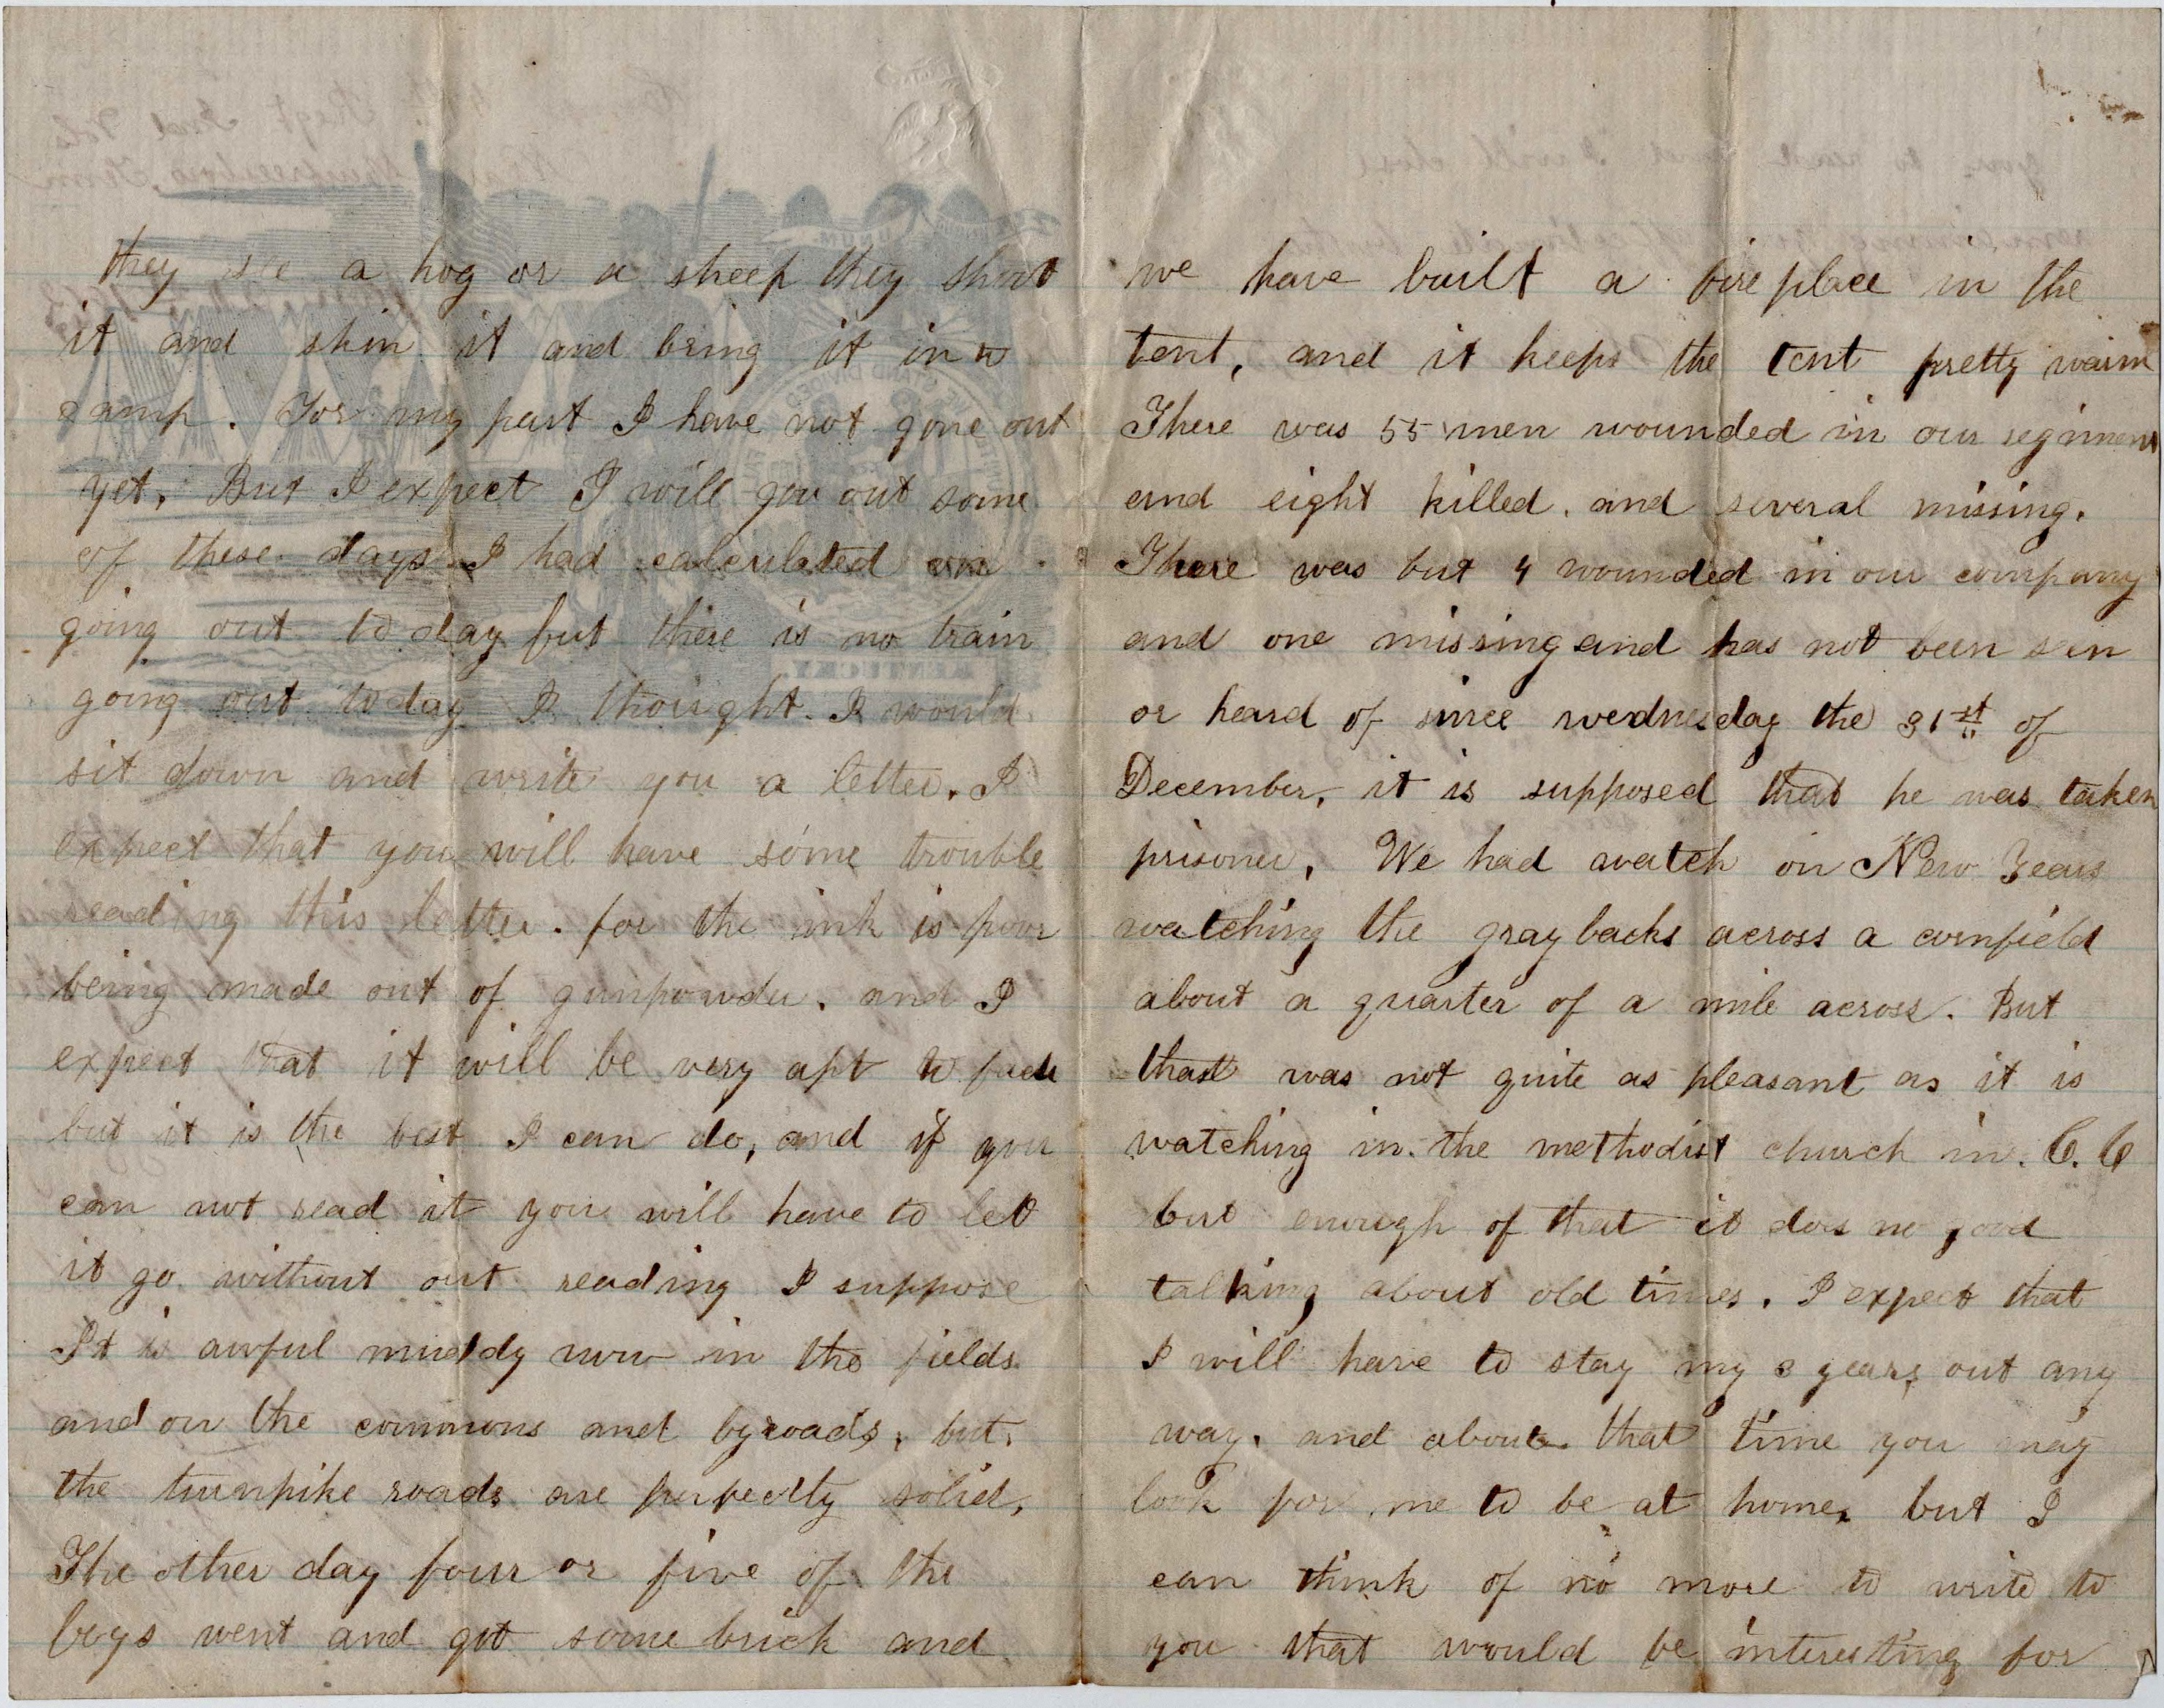 they see a hog or a sheep they shoot
it and skin it and bring it in
camp. For my part I have not gone out
yet. But I expect I will gou out some
of these days I had calculated on
going out to day but there is no train
going out today I thought I would
sit down and write you a letter. I
expect that you will have some trouble
reading this letter. for the ink is poor
being made out of gunpowder. and I
expect that it will be very apt to fade
but it is the best I can do, and if you
can not read it you will have to let
it go without out reading I suppose
It is awful muddy now in the fields
and on the commons and byroads, but
the turnpike roads are perfectly solid,
The other day four or five of the
boys went and got some brick and
we have built a fire place in the
tent, and it keeps the tent pretty warm
There was 55 men wounded in our regiment
and eight killed. and several missing.
There was but 4 wounded in our company
and one missing and has not been seen
or heard of since wednesday the 31st of
December, it is supposed that he was taken
prisoner, We had watch on New Years
watching the graybacks across a cornfield
about a quarter of a mile across. But
that was not quite as pleasant as it is
watching in the methodist church in. C.C
but enough of that it does no good
talking about old times. I expect that
I will have to stay my 3 years out any
way. and about that time you may
look for me to be at home, but I
can think of no more to write to
you that would be interesting for